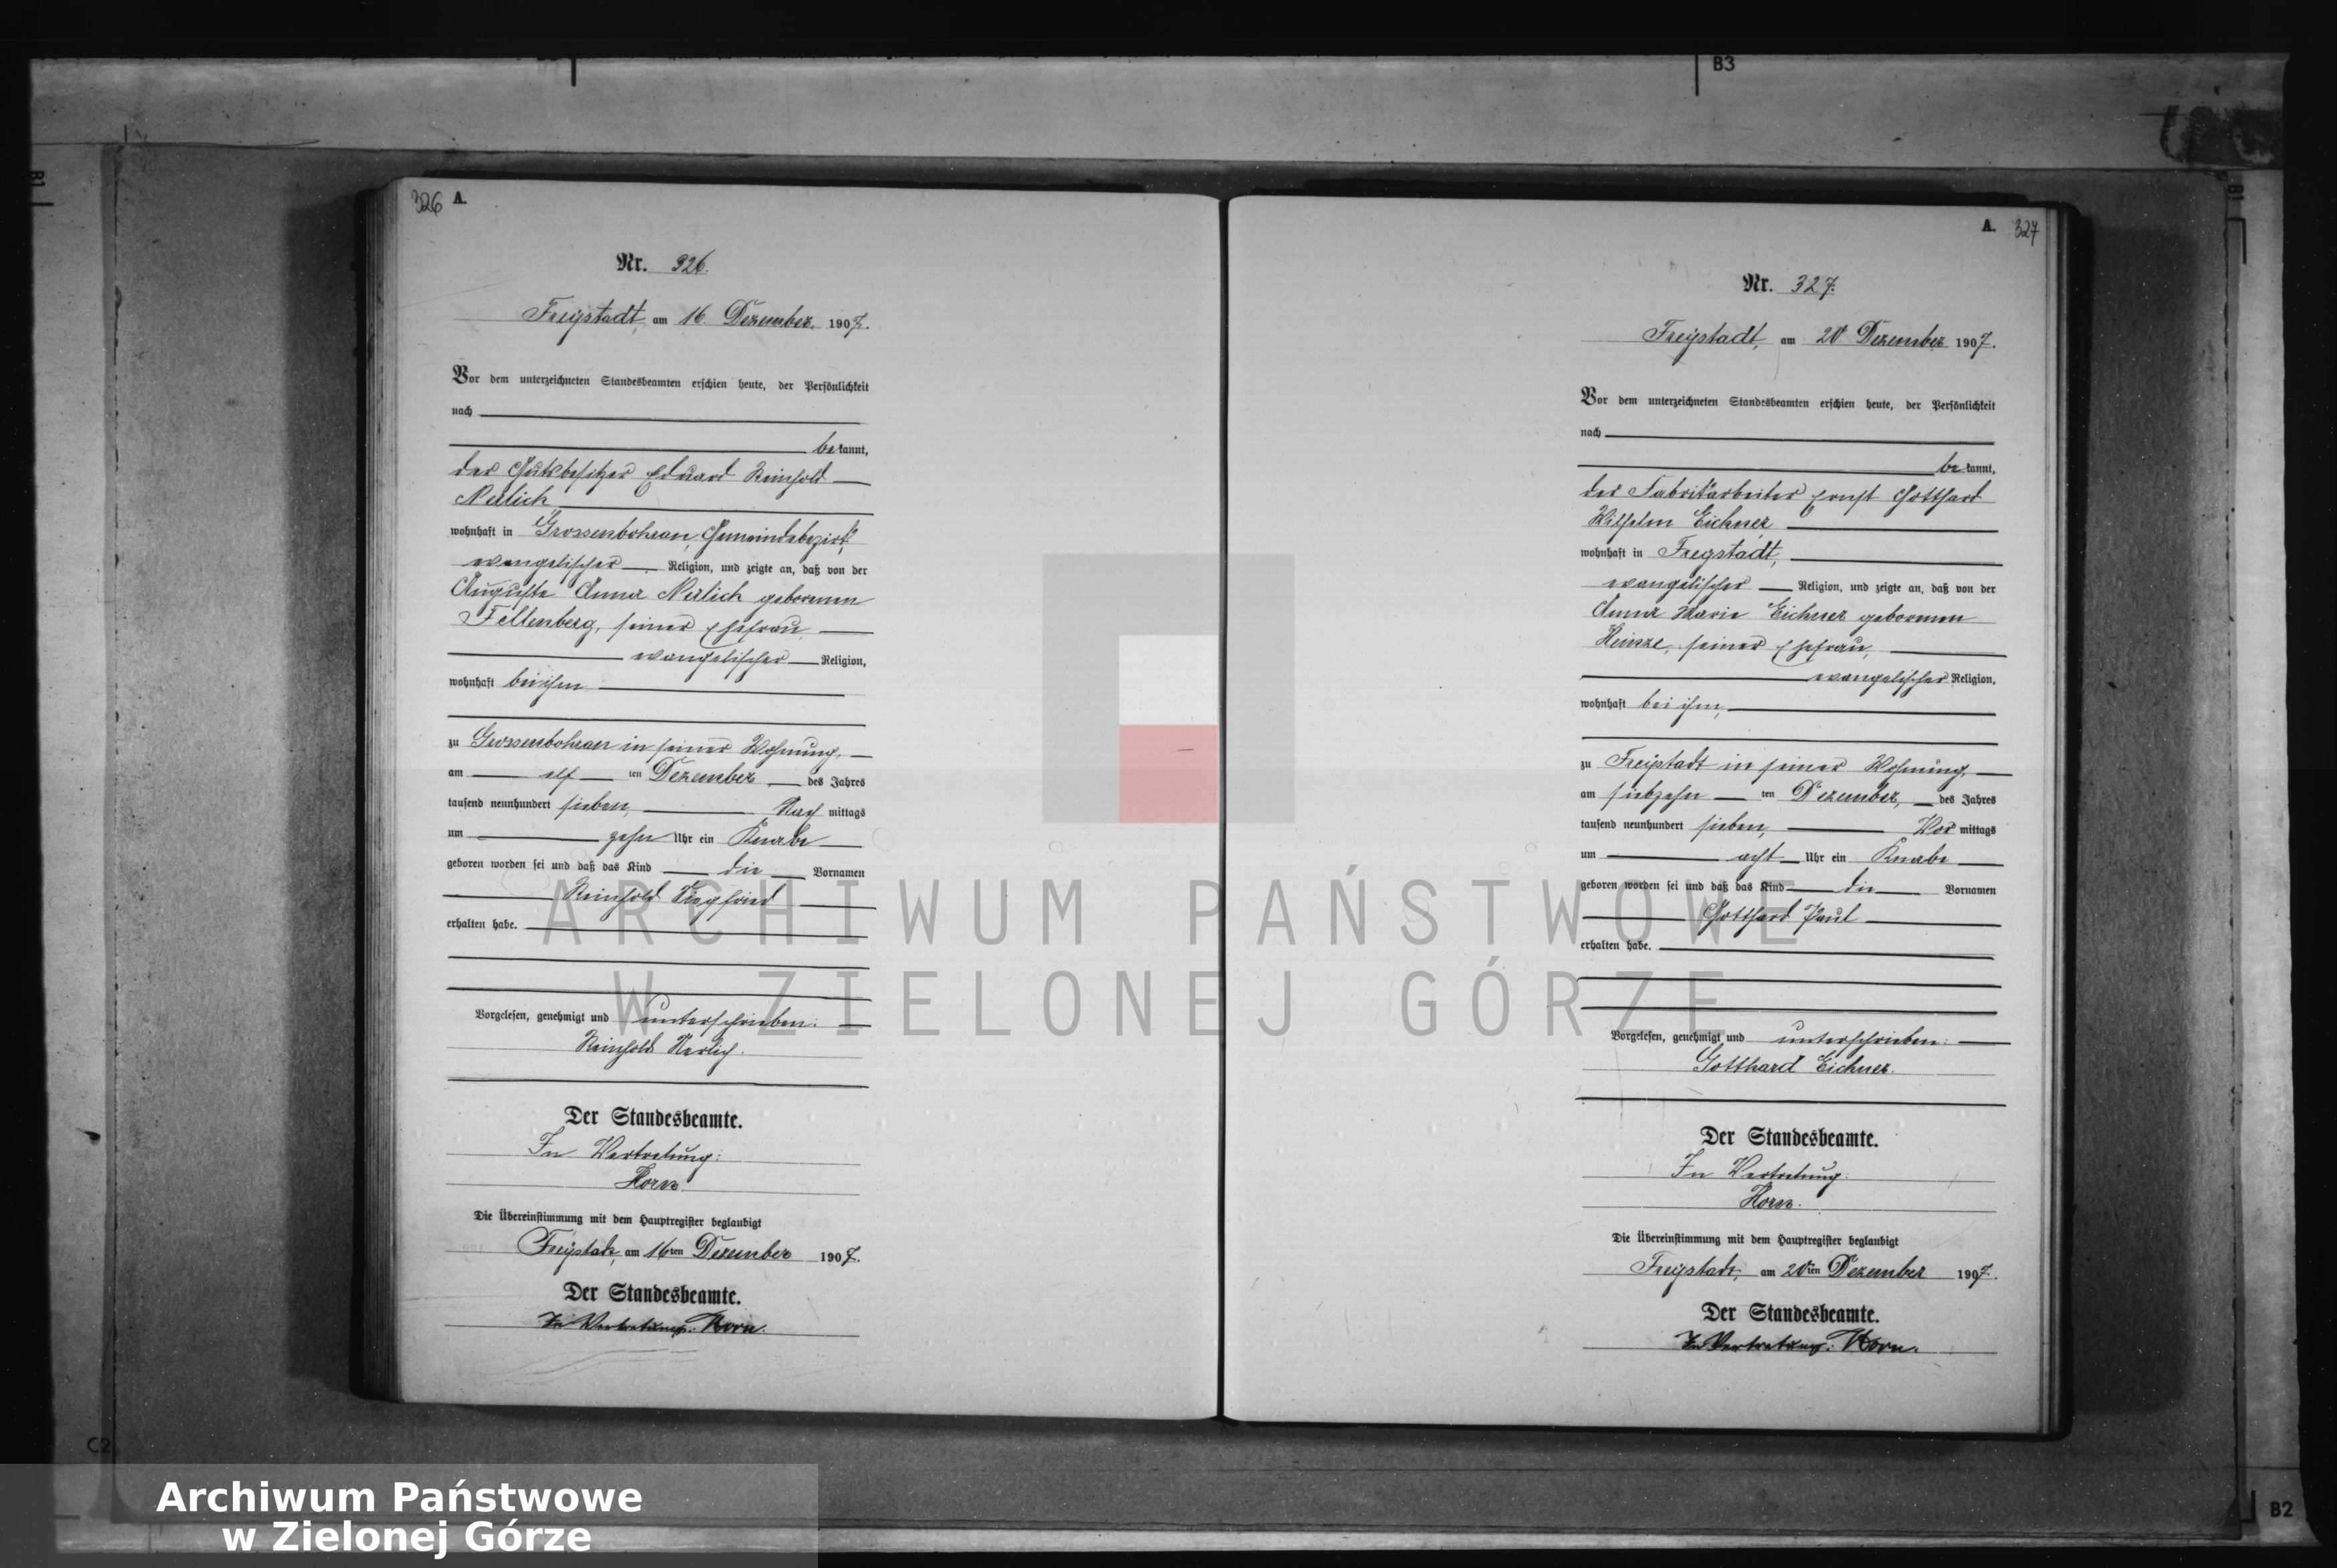 B3
B1
B1
326 A.
Nr. 326.
Freystadt, am 16. Dezember 1907.
Vor dem unterzeichneten Standesbeamten erschien heute, der Persönlichkeit
nach
bekannt,
der Gutsbesitzer Eduard Reinhold
Nerlich
wohnhaft in Grossenbohrau, Gemeindebezirk,
evangelischer Religion, und zeigte an, daß von der
Auguste Anna Nerlich geborenen
Fellenberg, seiner Ehefrau,
evangelischer Religion,
wohnhaft bei ihm
zu Grossenbohrau in seiner Wohnung,
am elf ten Dezember des Jahres
tausend neunhundert sieben, Nach mittags
um zehn Uhr ein Knabe
geboren worden sei und daß das Kind die Vornamen
Reinhold Siegfried
erhalten habe.
Vorgelesen, genehmigt und unterschrieben:
Reinhold Nerlich.
Der Standesbeamte.
In Vertretung:
Horn.
Die Übereinstimmung mit dem Hauptregister beglaubigt
Freystadt, am 16ten Dezember 1907.
Der Standesbeamte.
In Vertretung: Horn.
A. 327
Nr. 327.
Freystadt, am 20 Dezember 1907.
Vor dem unterzeichneten Standesbeamten erschien heute, der Persönlichkeit
nach
bekannt,
der Fabrikarbeiter Ernst Gotthard
Wilhelm Eichner
wohnhaft in Freystadt,
evangelischer Religion, und zeigte an, daß von der
Anna Marie Eichner geborenen
Heinze, seiner Ehefrau,
evangelischer Religion,
wohnhaft bei ihm,
zu Freystadt in seiner Wohnung,
am siebzehn ten Dezember, des Jahres
tausend neunhundert sieben, Vor mittags
um acht Uhr ein Knabe
geboren worden sei und daß das Kind die Vornamen
Gotthard Paul
erhalten habe.
Vorgelesen, genehmigt und unterschrieben:
Gotthard Eichner.
Der Standesbeamte.
In Vertretung:
Horn.
Die Übereinstimmung mit dem Hauptregister beglaubigt
Freystadt, am 20ten Dezember 1907.
Der Standesbeamte.
In Vertretung: Horn.
ARCHIWUM PAŃSTWOWE
W ZIELONEJ GÓRZE
C2
B2
Archiwum Państwowe
w Zielonej Górze